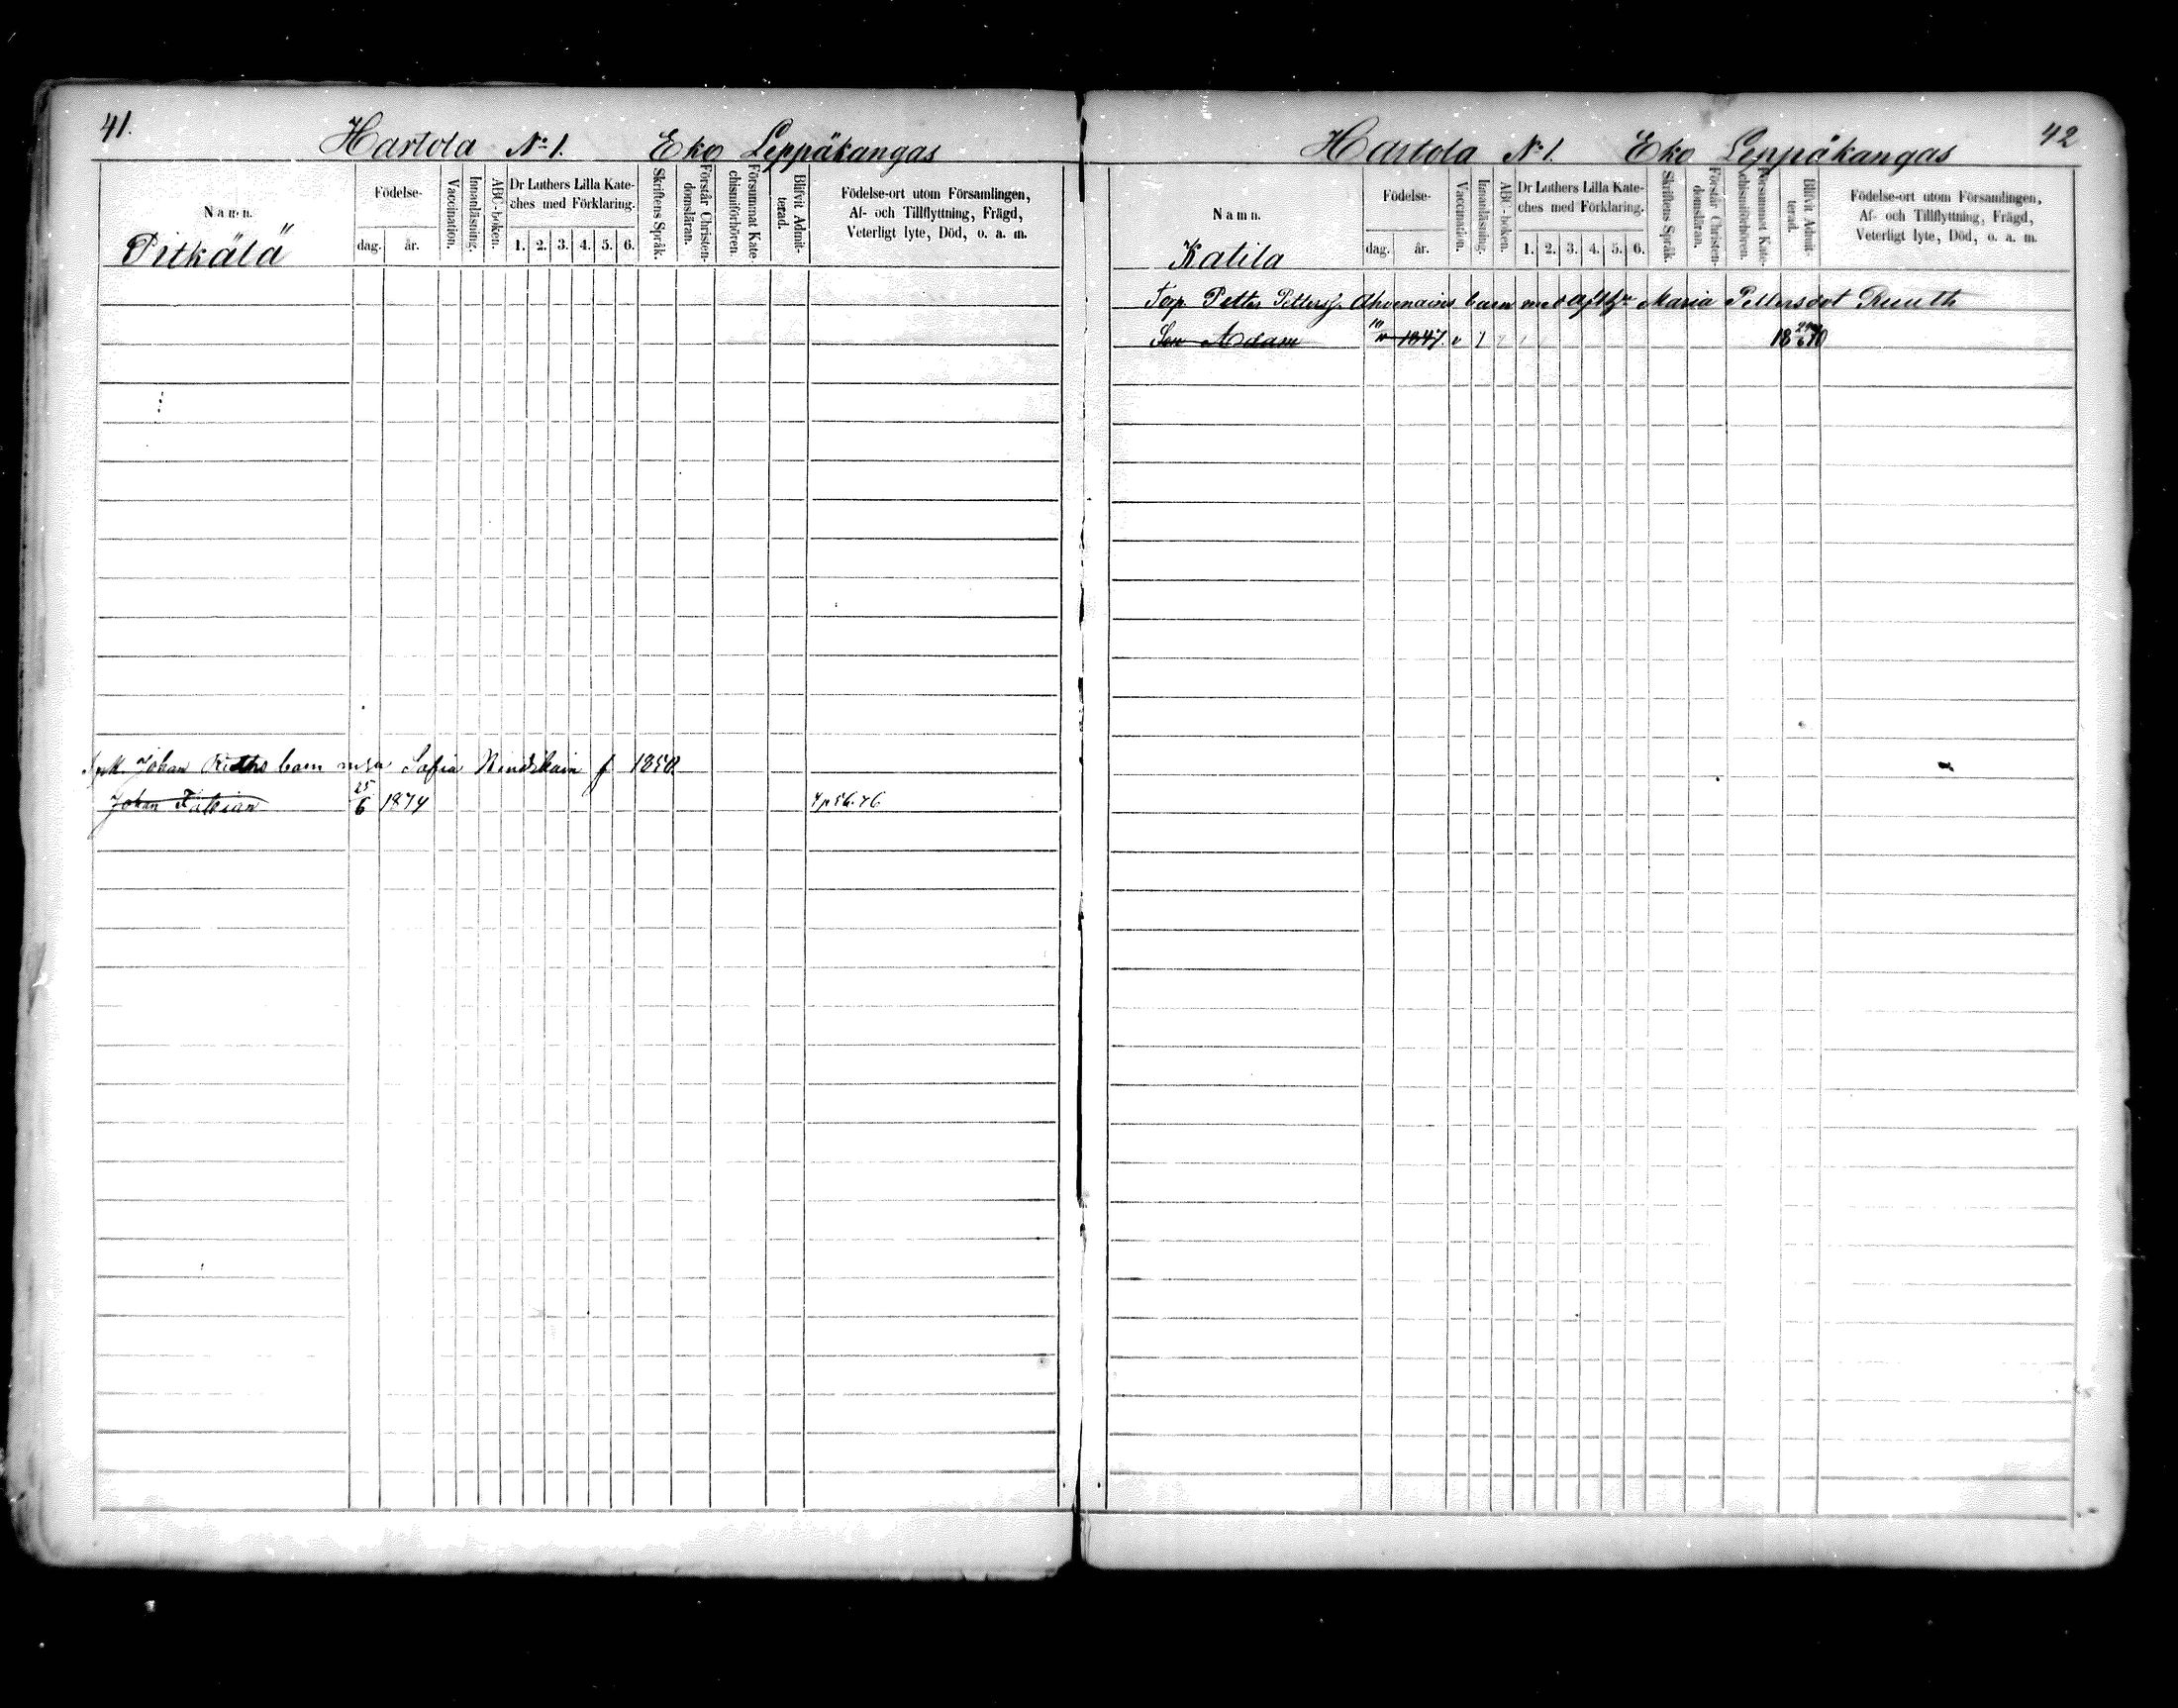 41.
Hartola № 1. Eko Leppäkangas
Namn.
Pitkälä
Födelse-
dag.
år.
Vaccination.
Innanläsning.
ABC-boken.
Dr Luthers Lilla Kate-
ches med Förklaring.
1. 2. 3. 4. 5. 6.
Skriftens Språk.
Förstår Christen-
domsläran.
Försummat Kate-
chismiförhören.
Blifvit Admit-
terad.
Födelse-ort utom Församlingen,
Af- och Tillflyttning, Frägd,
Veterligt lyte, Död, o. a. m.
Johan barn Sofia f 1850.
Johan Fabian 25/6 1874
42
Hartola № 1. Eko Leppäkangas
Namn.
Katila
Födelse-
dag.
år.
Vaccination.
Innanläsning.
ABC-boken.
Dr Luthers Lilla Kate-
ches med Förklaring.
1. 2. 3. 4. 5. 6.
Skriftens Språk.
Förstår Christen-
domsläran.
Försummat Kate-
chismiförhören.
Blifvit Admit-
terad.
Födelse-ort utom Församlingen,
Af- och Tillflyttning, Frägd,
Veterligt lyte, Död, o. a. m.
Torp. Petter Pettersf. Ahvenains barn med Maria Pettersdot Ruuth
Son Adam 1847. v